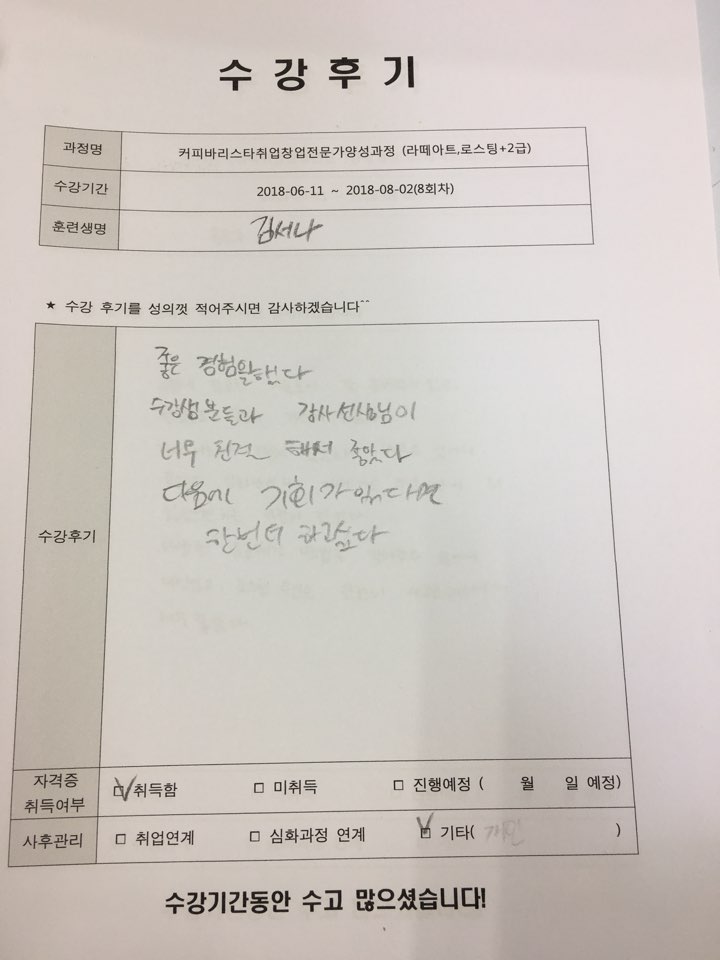 수강후기
과정명 커피바리스타취업창업전문가양성과정 (라떼아트,로스팅+2급)
수강기간 2018-06-11 ~ 2018-08-02(8회차)
훈련생명 김서나
★ 수강 후기를 성의껏 적어주시면 감사하겠습니다^^
수강후기
좋은 경험을했다
수강생분들과 강사선생님이
너무 친절 해서 좋았다
다음에 기회가있다면
한번더 하고싶다
자격증
취득여부
☑ 취득함 □ 미취득 □ 진행예정 ( 월 일 예정)
사후관리 □ 취업연계 □ 심화과정 연계 ☑ 기타( 개인 )
수강기간동안 수고 많으셨습니다!